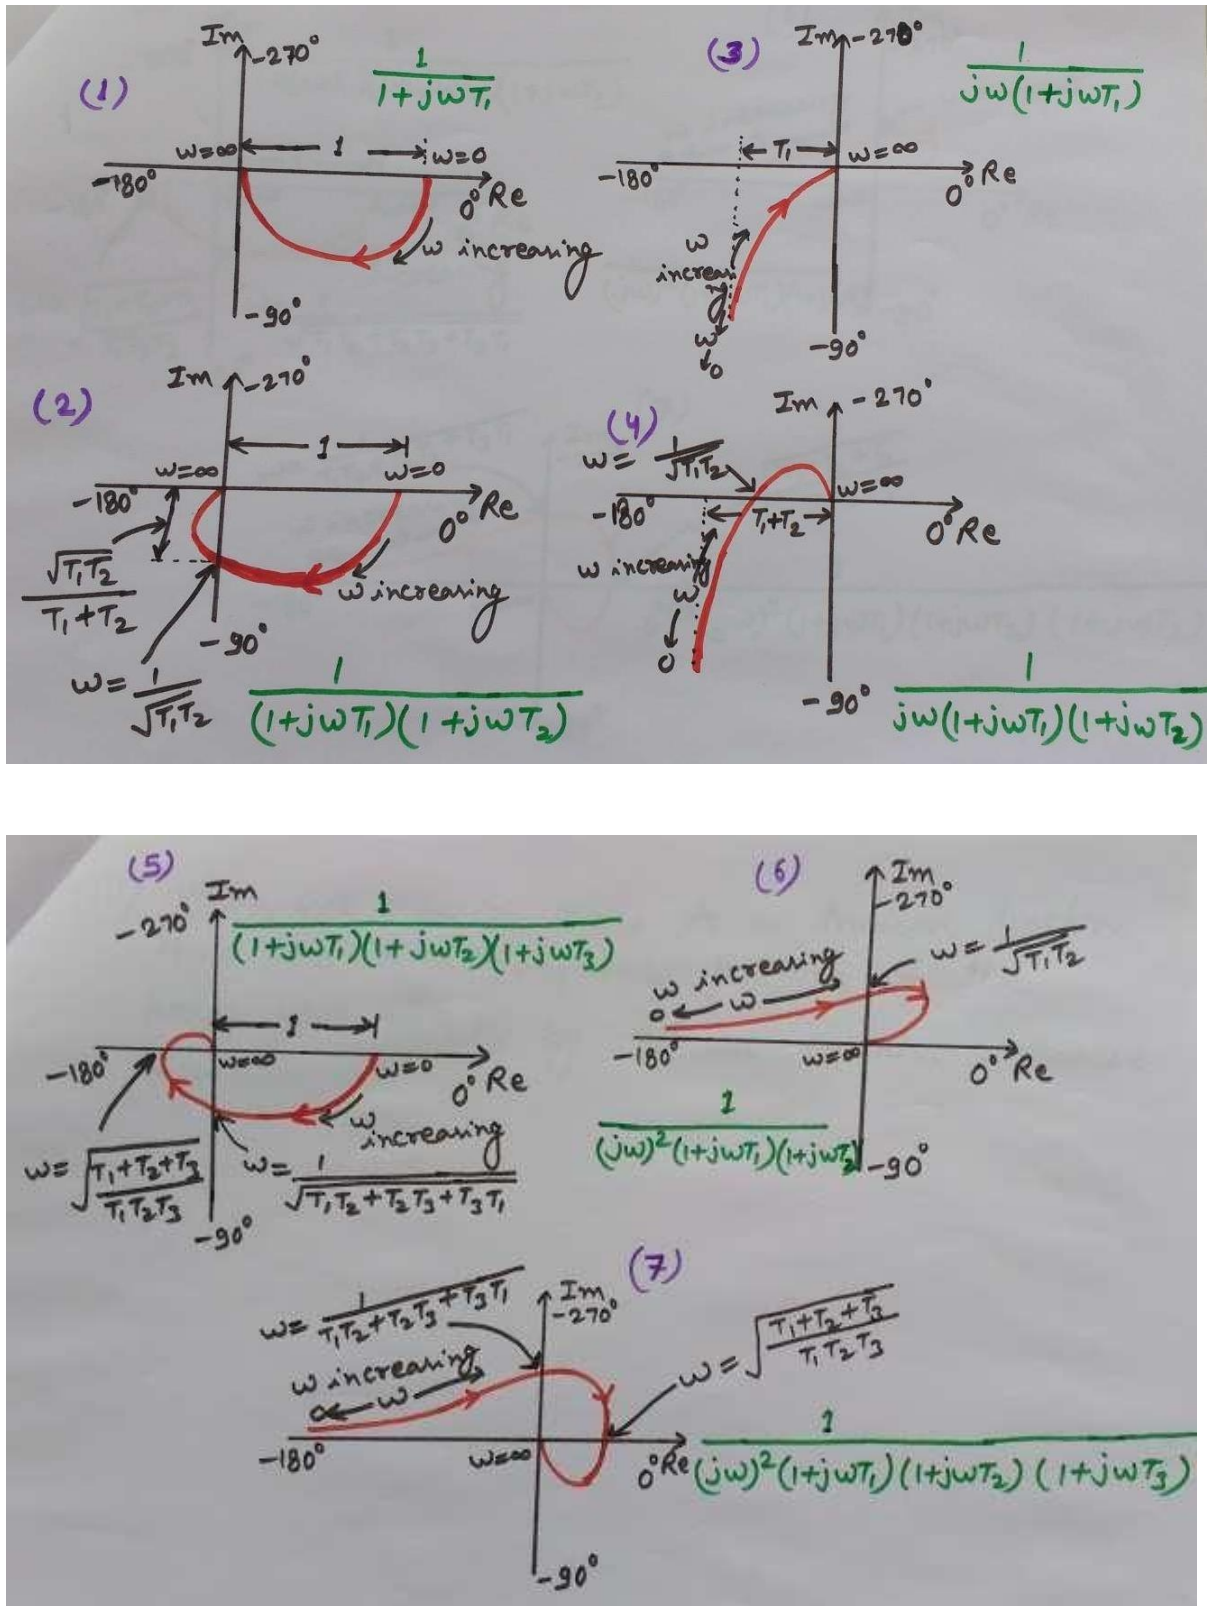 (1)
Im
-270°
1
1+jωT₁
ω=∞
1
ω=0
-180°
0° Re
ω increasing
-90°
(3)
Im
-270°
1
jω(1+jωT₁)
T₁
ω=∞
-180°
0° Re
ω
increasi
ng
ω
0
-90°
(2)
Im
-270°
1
ω=∞
ω=0
-180°
0° Re
√T₁T₂
T₁+T₂
ω increasing
-90°
ω= 1
√T₁T₂
1
(1+jωT₁)(1+jωT₂)
(4)
Im
-270°
ω= 1
√T₁T₂
ω=∞
-180°
T₁+T₂
0° Re
ω increasing
ω
0
-90°
1
jω(1+jωT₁)(1+jωT₂)
(5)
Im
-270°
1
(1+jωT₁)(1+jωT₂)(1+jωT₃)
1
-180°
ω=∞
ω=0
0° Re
ω
increasing
ω= √T₁+T₂+T₃
T₁T₂T₃
ω= 1
√T₁T₂+T₂T₃+T₃T₁
-90°
(6)
Im
-270°
ω= 1
√T₁T₂
ω increasing
0 ω
-180°
ω=∞
0° Re
1
(jω)²(1+jωT₁)(1+jωT₂)
-90°
(7)
Im
-270°
ω= 1
T₁T₂+T₂T₃+T₃T₁
ω= √T₁+T₂+T₃
T₁T₂T₃
ω increasing
0 ω
-180°
ω=∞
0° Re
1
(jω)²(1+jωT₁)(1+jωT₂)(1+jωT₃)
-90°